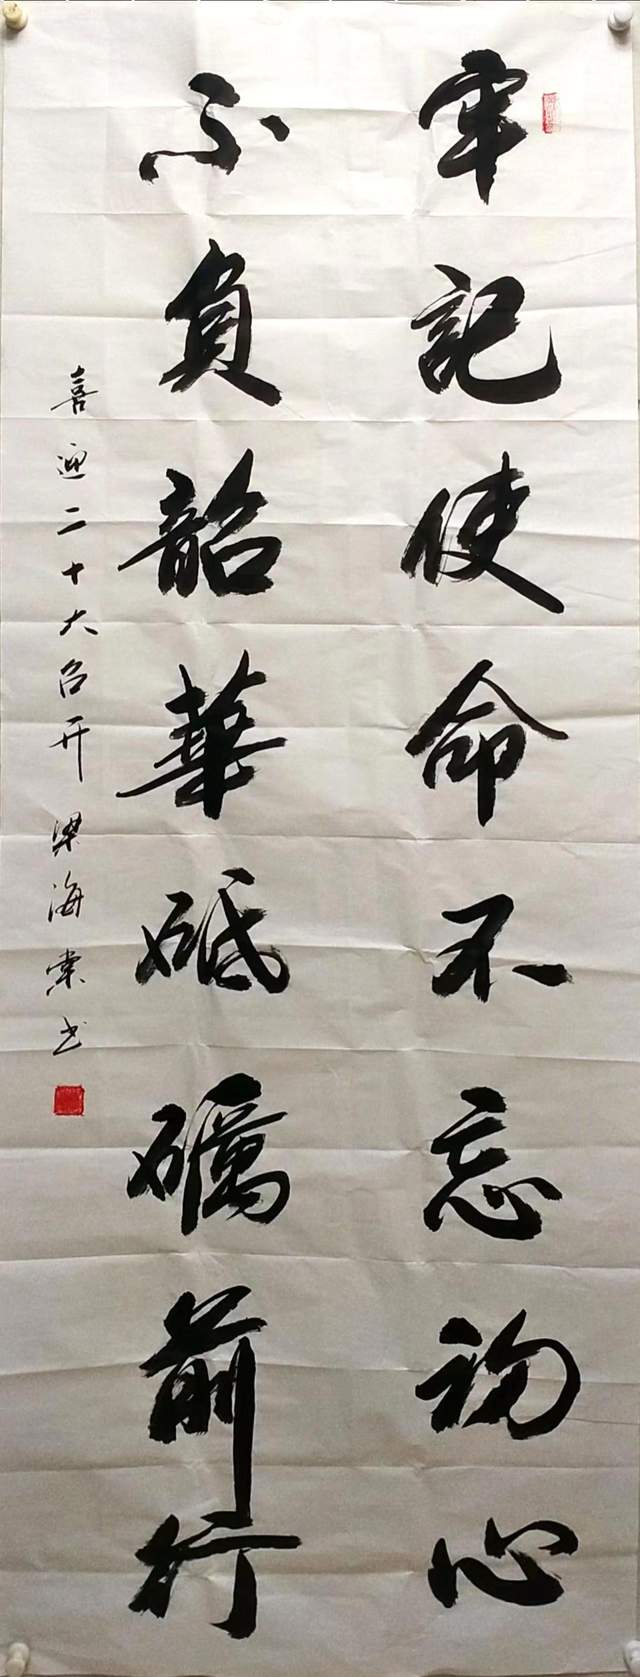 牢記使命不忘初心
不負韶華砥礪前行
喜迎二十大召开 梁海棠书